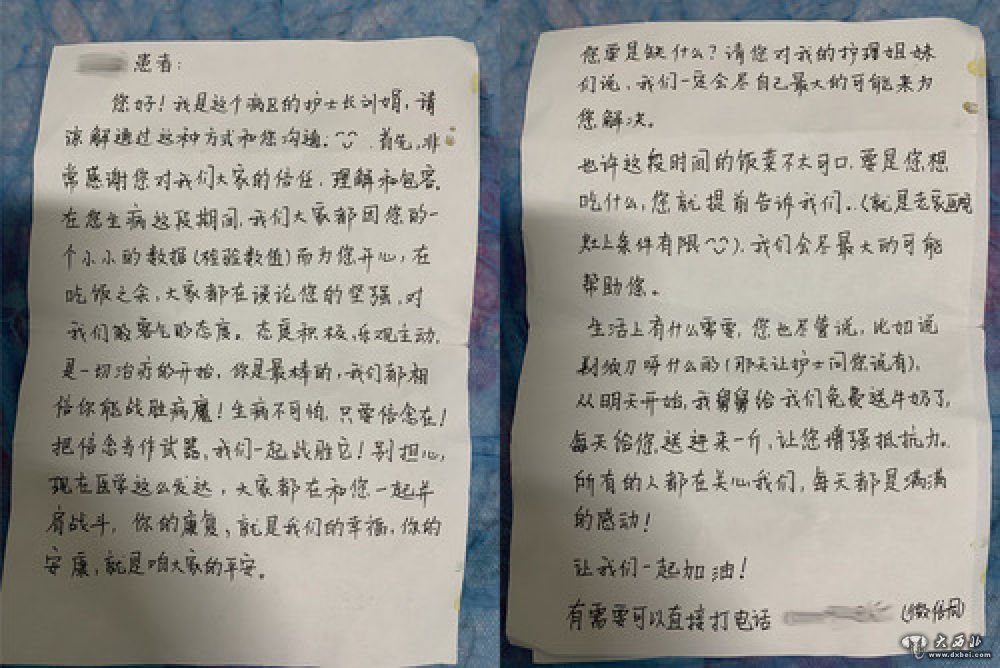 患者:
您好!我是这个病区的护士长刘娟,请
谅解通过这种方式和您沟通。首先,非
常感谢您对我们大家的信任、理解和包容。
在您生病这段期间,我们大家都因您的一
个小小的数据(检验数值)而为您开心,在
吃饭之余,大家都在谈论您的坚强,对
我们客气的态度。态度积极,乐观主动,
是一切治疗的开始,你是最棒的,我们都相
信你能战胜病魔!生病不可怕,只要信念在!
把信念当作武器,我们一起战胜它!别担心,
现在医学这么发达,大家都在和您一起并
肩战斗,你的康复,就是我们的幸福,你的
安康,就是咱大家的平安。
您要是缺什么?请您对我的护理姐妹
们说,我们一定会尽自己最大的可能来为
您解决。
也许这段时间的饭菜不太可口,要是您想
吃什么,您就提前告诉我们。(就是老家
灶上条件有限),我们会尽最大的可能
帮助您。
生活上有什么需要,您也尽管说,比如说
剃须刀呀什么的(那天让护士问您说有)。
从明天开始,我舅舅给我们免费送牛奶了,
每天给您送进来一斤,让您增强抵抗力。
所有的人都在关心我们,每天都是满满
的感动!
让我们一起加油!
有需要可以直接打电话 (微信同)
大西北
www.dxbei.com